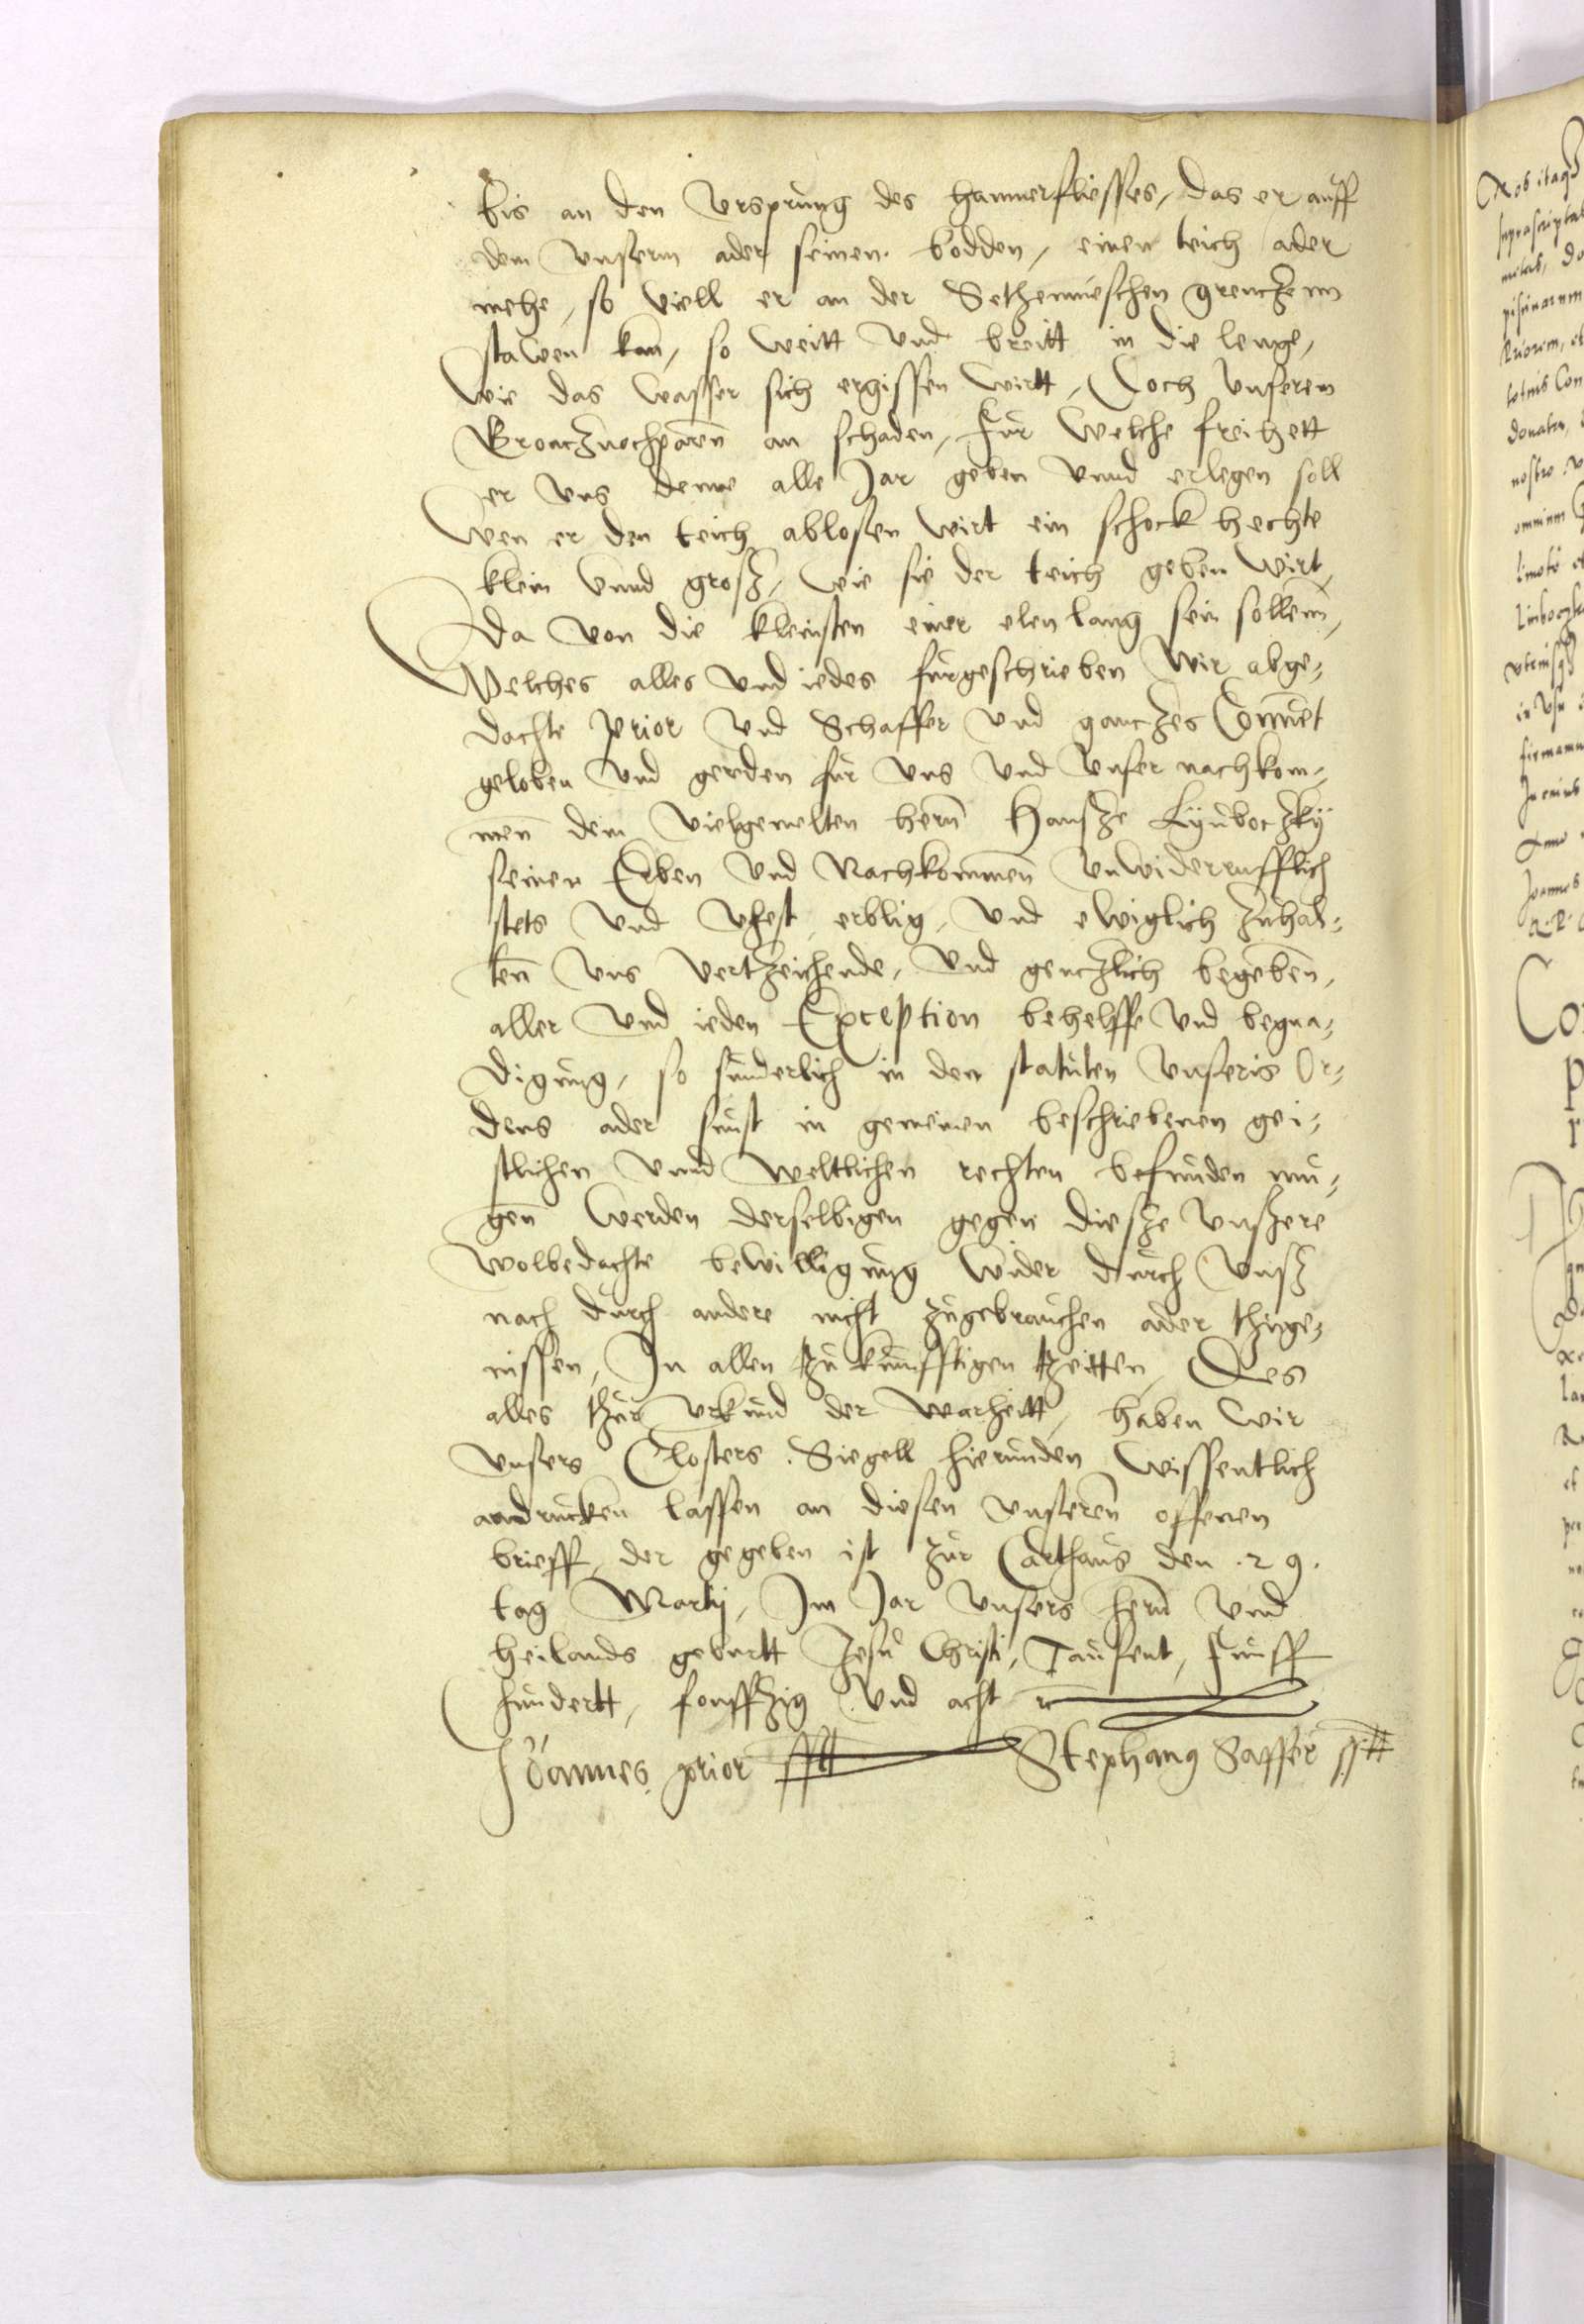 bis an den Vrsprung des hamerfliesses, das er auff
dem Vnserm ader seinen bodden, einen teich ader
mehe, so viell er an der Sethennieschen grenczenn
stawen kan, so weitt vnd breitt in die lenge,
wie das wasser sich ergissen wirtt, Doch vnserem
an schaden, Für welche freihett
er vns denne alle Jar geben vnnd erlegen soll
wen er den teich ablosen wirt ein schock hechte
klein vnnd grosz, wie sie der teich geben wirt,
Da von die kleinsten einer elen lang sein sollenn,
Welches alles vnd iedes fürgeschrieben wir abge-
dachte prior vnd Schaffer vnd ganczes Convent
geloben vnd gereden für vns vnd vnser nachkom-
men dem vielgemelten hern Hansze Lynboczky
seinen Erben vnd Nachkommen vnwiderrufflich
stets vnd vhest, erblig, vnd ewiglich zuhal-
ten vns vertzeichende, vnd genczlich begeben,
aller vnd ieden Exception behelffe vnd begna-
digung, so sunderlich in den statuten vnseris Or-
dens ader sunst in gemeinen beschriebenen gei-
stlichen vnnd weltlichen rechten befunden mu-
gen werden derselbigen gegen diesze vnszere
wolbedachte bewilligung wider durch vnsz
nach durch andere nicht zugebrauchen ader thuge-
nissen, In allen tzukunfftigen tzeitten, Des
alles thur vrkund der warheitt, haben wir
vnsers Closters Siegell hierunden wissentlich
andrucken lassen an diesen vnseren offenen
brieff, der gegeben ist zur Carthaus den .29.
tag Martij, Im Jar vnsers hern vnd
heilands geburtt Jesu Christi, Tausent, Funff
hundertt, fonffzig vnd acht
Joannes prior Stephanus Saffer